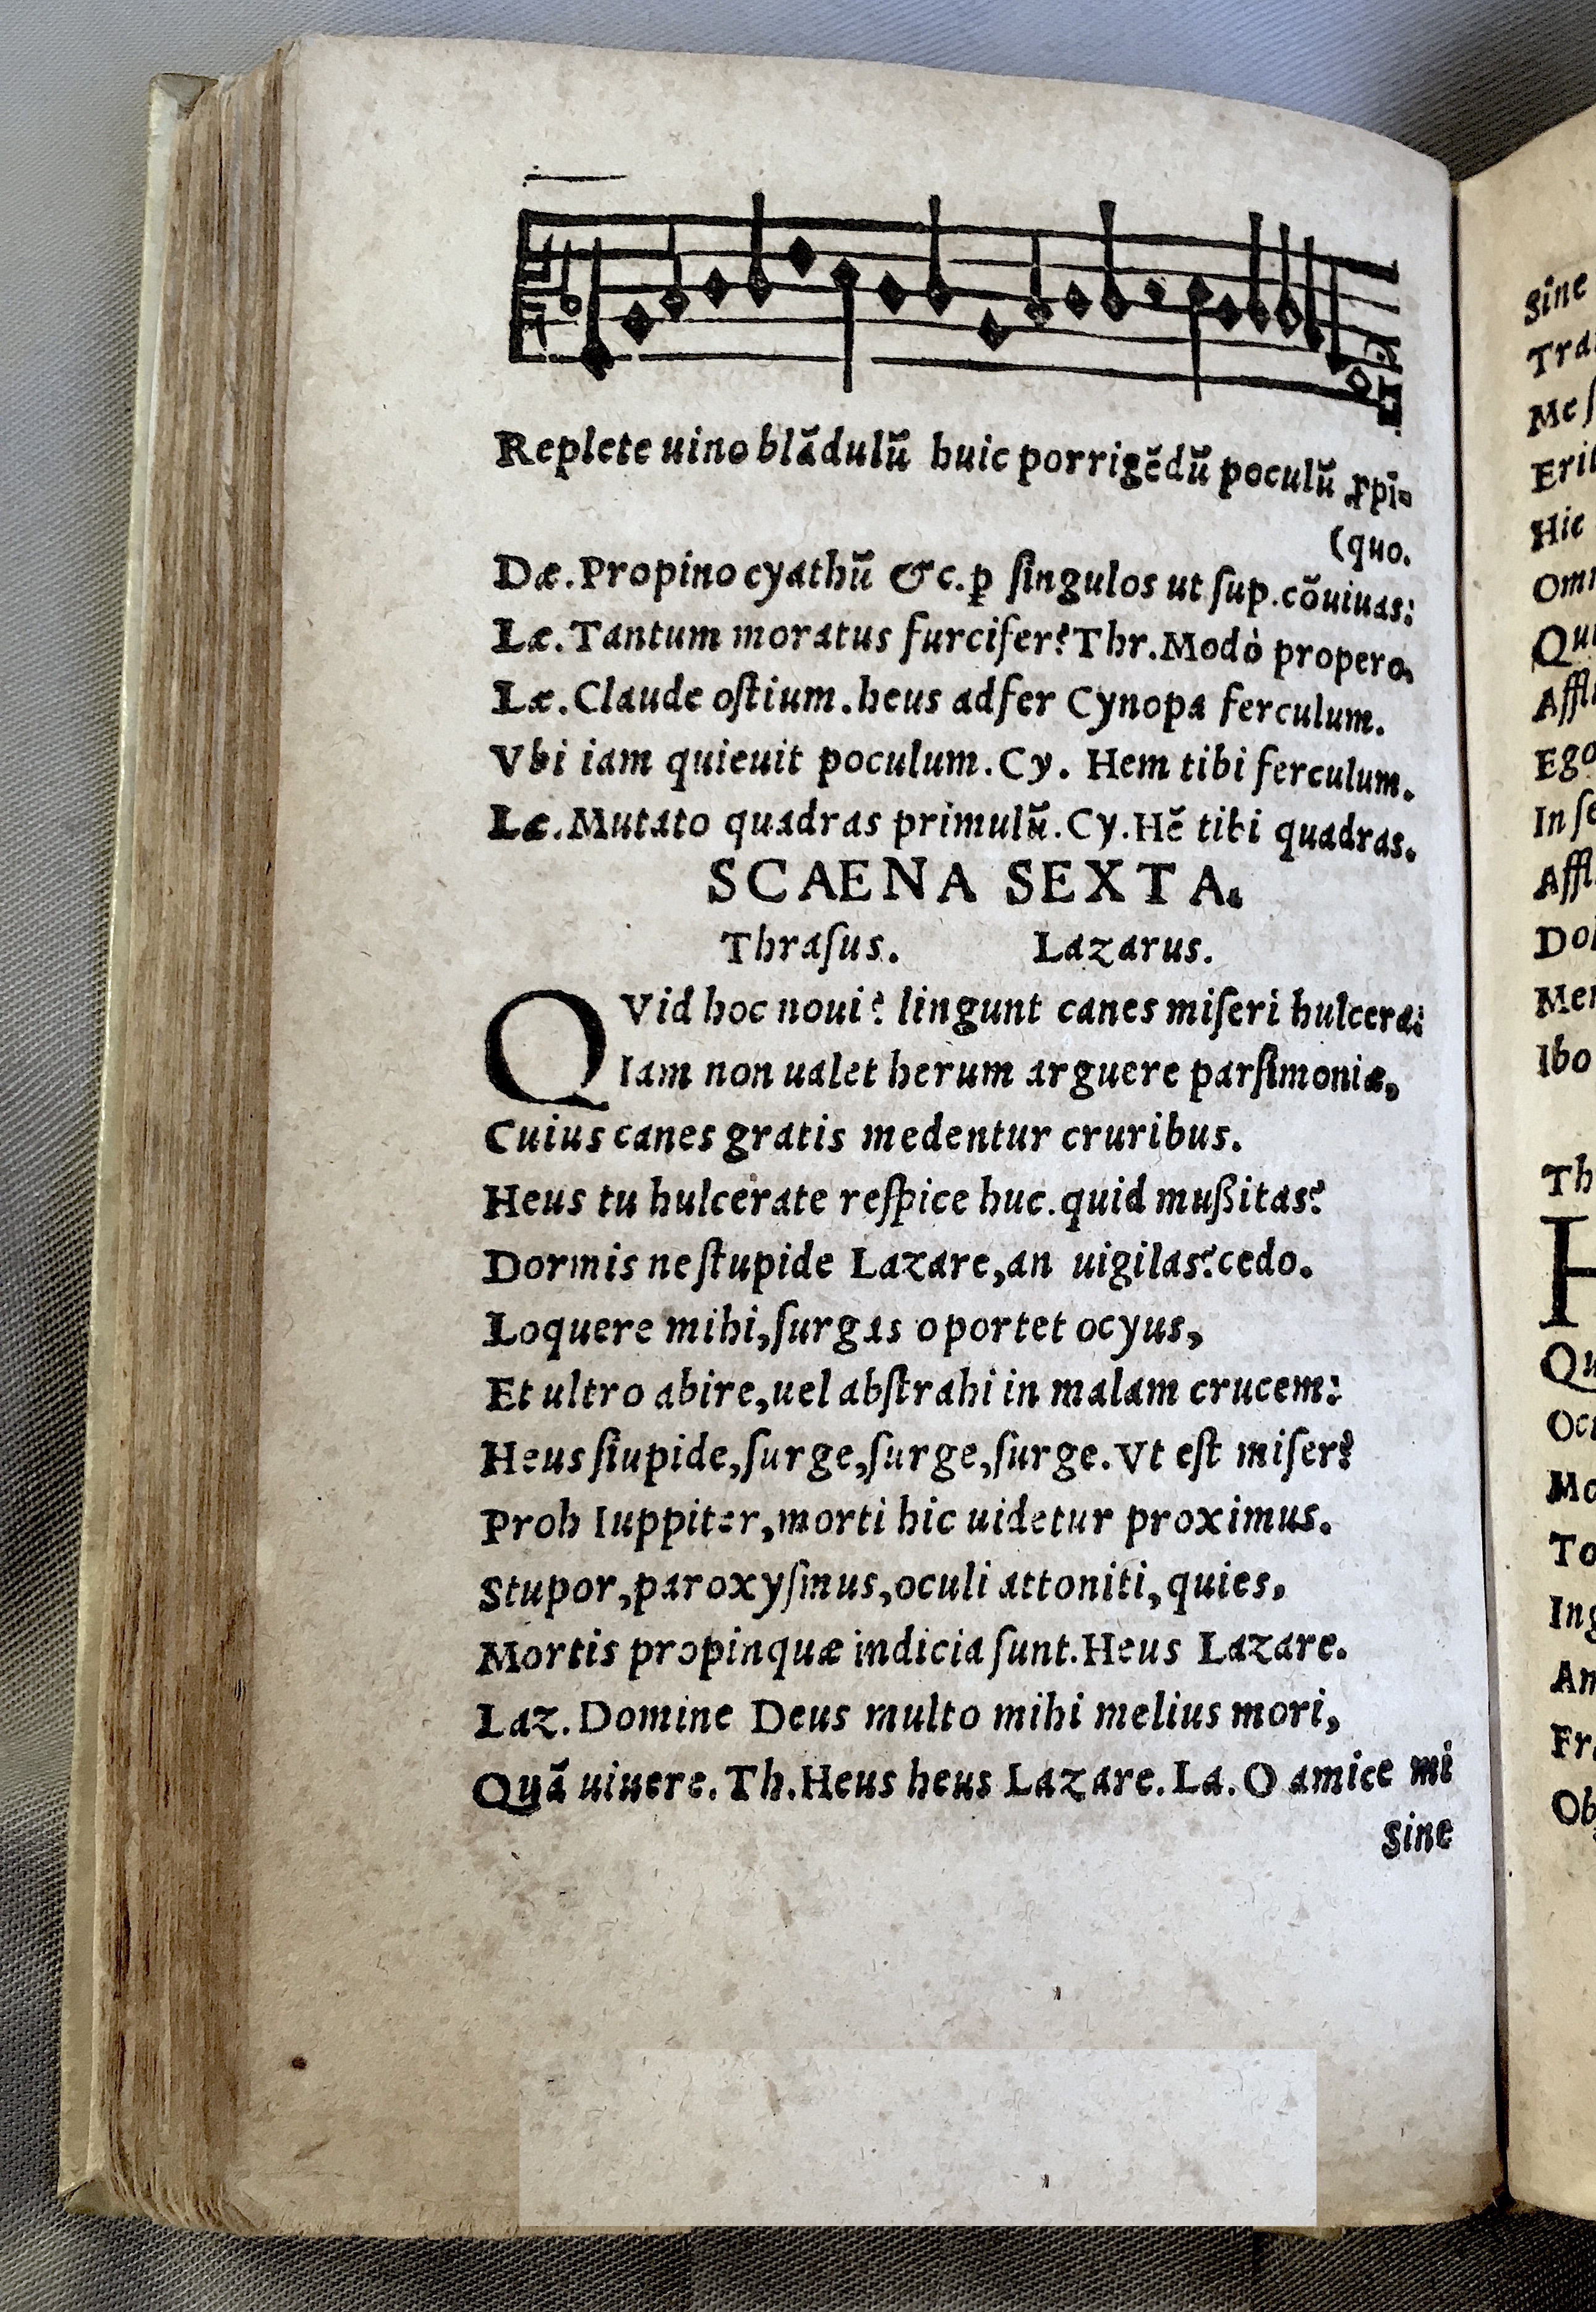 Replete uino blãdulũ huic porrigẽdũ poculũ ꝓpi-
(quo.
Dæ. Propino cyathũ &c. ꝑ ſingulos ut ſup. cõuiuas:
Læ. Tantum moratus furcifer? Thr. Modò propero.
Læ. Claude oſtium. heus adfer Cynopa ferculum.
Vbi iam quieuit poculum. Cy. Hem tibi ferculum.
Læ. Mutato quadras primulũ. Cy. Hẽ tibi quadras.
SCAENA SEXTA.
Thraſus. Lazarus.
QVid hoc noui? lingunt canes miſeri hulcera:
Iam non ualet herum arguere parſimoniæ,
Cuius canes gratis medentur cruribus.
Heus tu hulcerate reſpice huc. quid mußitas?
Dormis ne ſtupide Lazare, an uigilas? cedo.
Loquere mihi, ſurgas oportet ocyus,
Et ultro abire, uel abſtrahi in malam crucem:
Heus ſtupide, ſurge, ſurge, ſurge. Vt eſt miſer?
Proh Iuppiter, morti hic uidetur proximus.
Stupor, paroxyſmus, oculi attoniti, quies,
Mortis propinquæ indicia ſunt. Heus Lazare.
Laz. Domine Deus multo mihi melius mori,
Quã uiuere. Th. Heus heus Lazare. La. O amice mi
Sine
Sine
Hic
Ego
Ibo